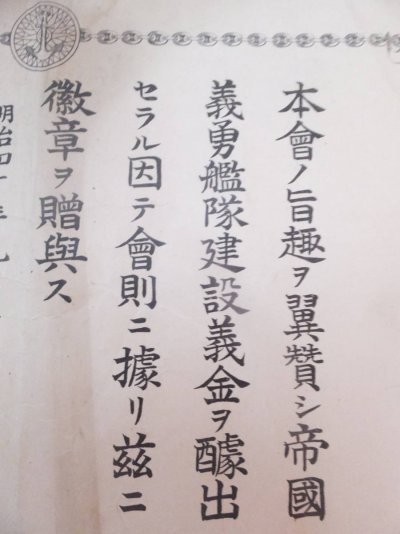 本會ノ旨趣ヲ翼贊シ帝國
義勇艦隊建設義金ヲ醵出
セラル因テ會則ニ據リ茲ニ
徽章ヲ贈與ス
明治四十年九